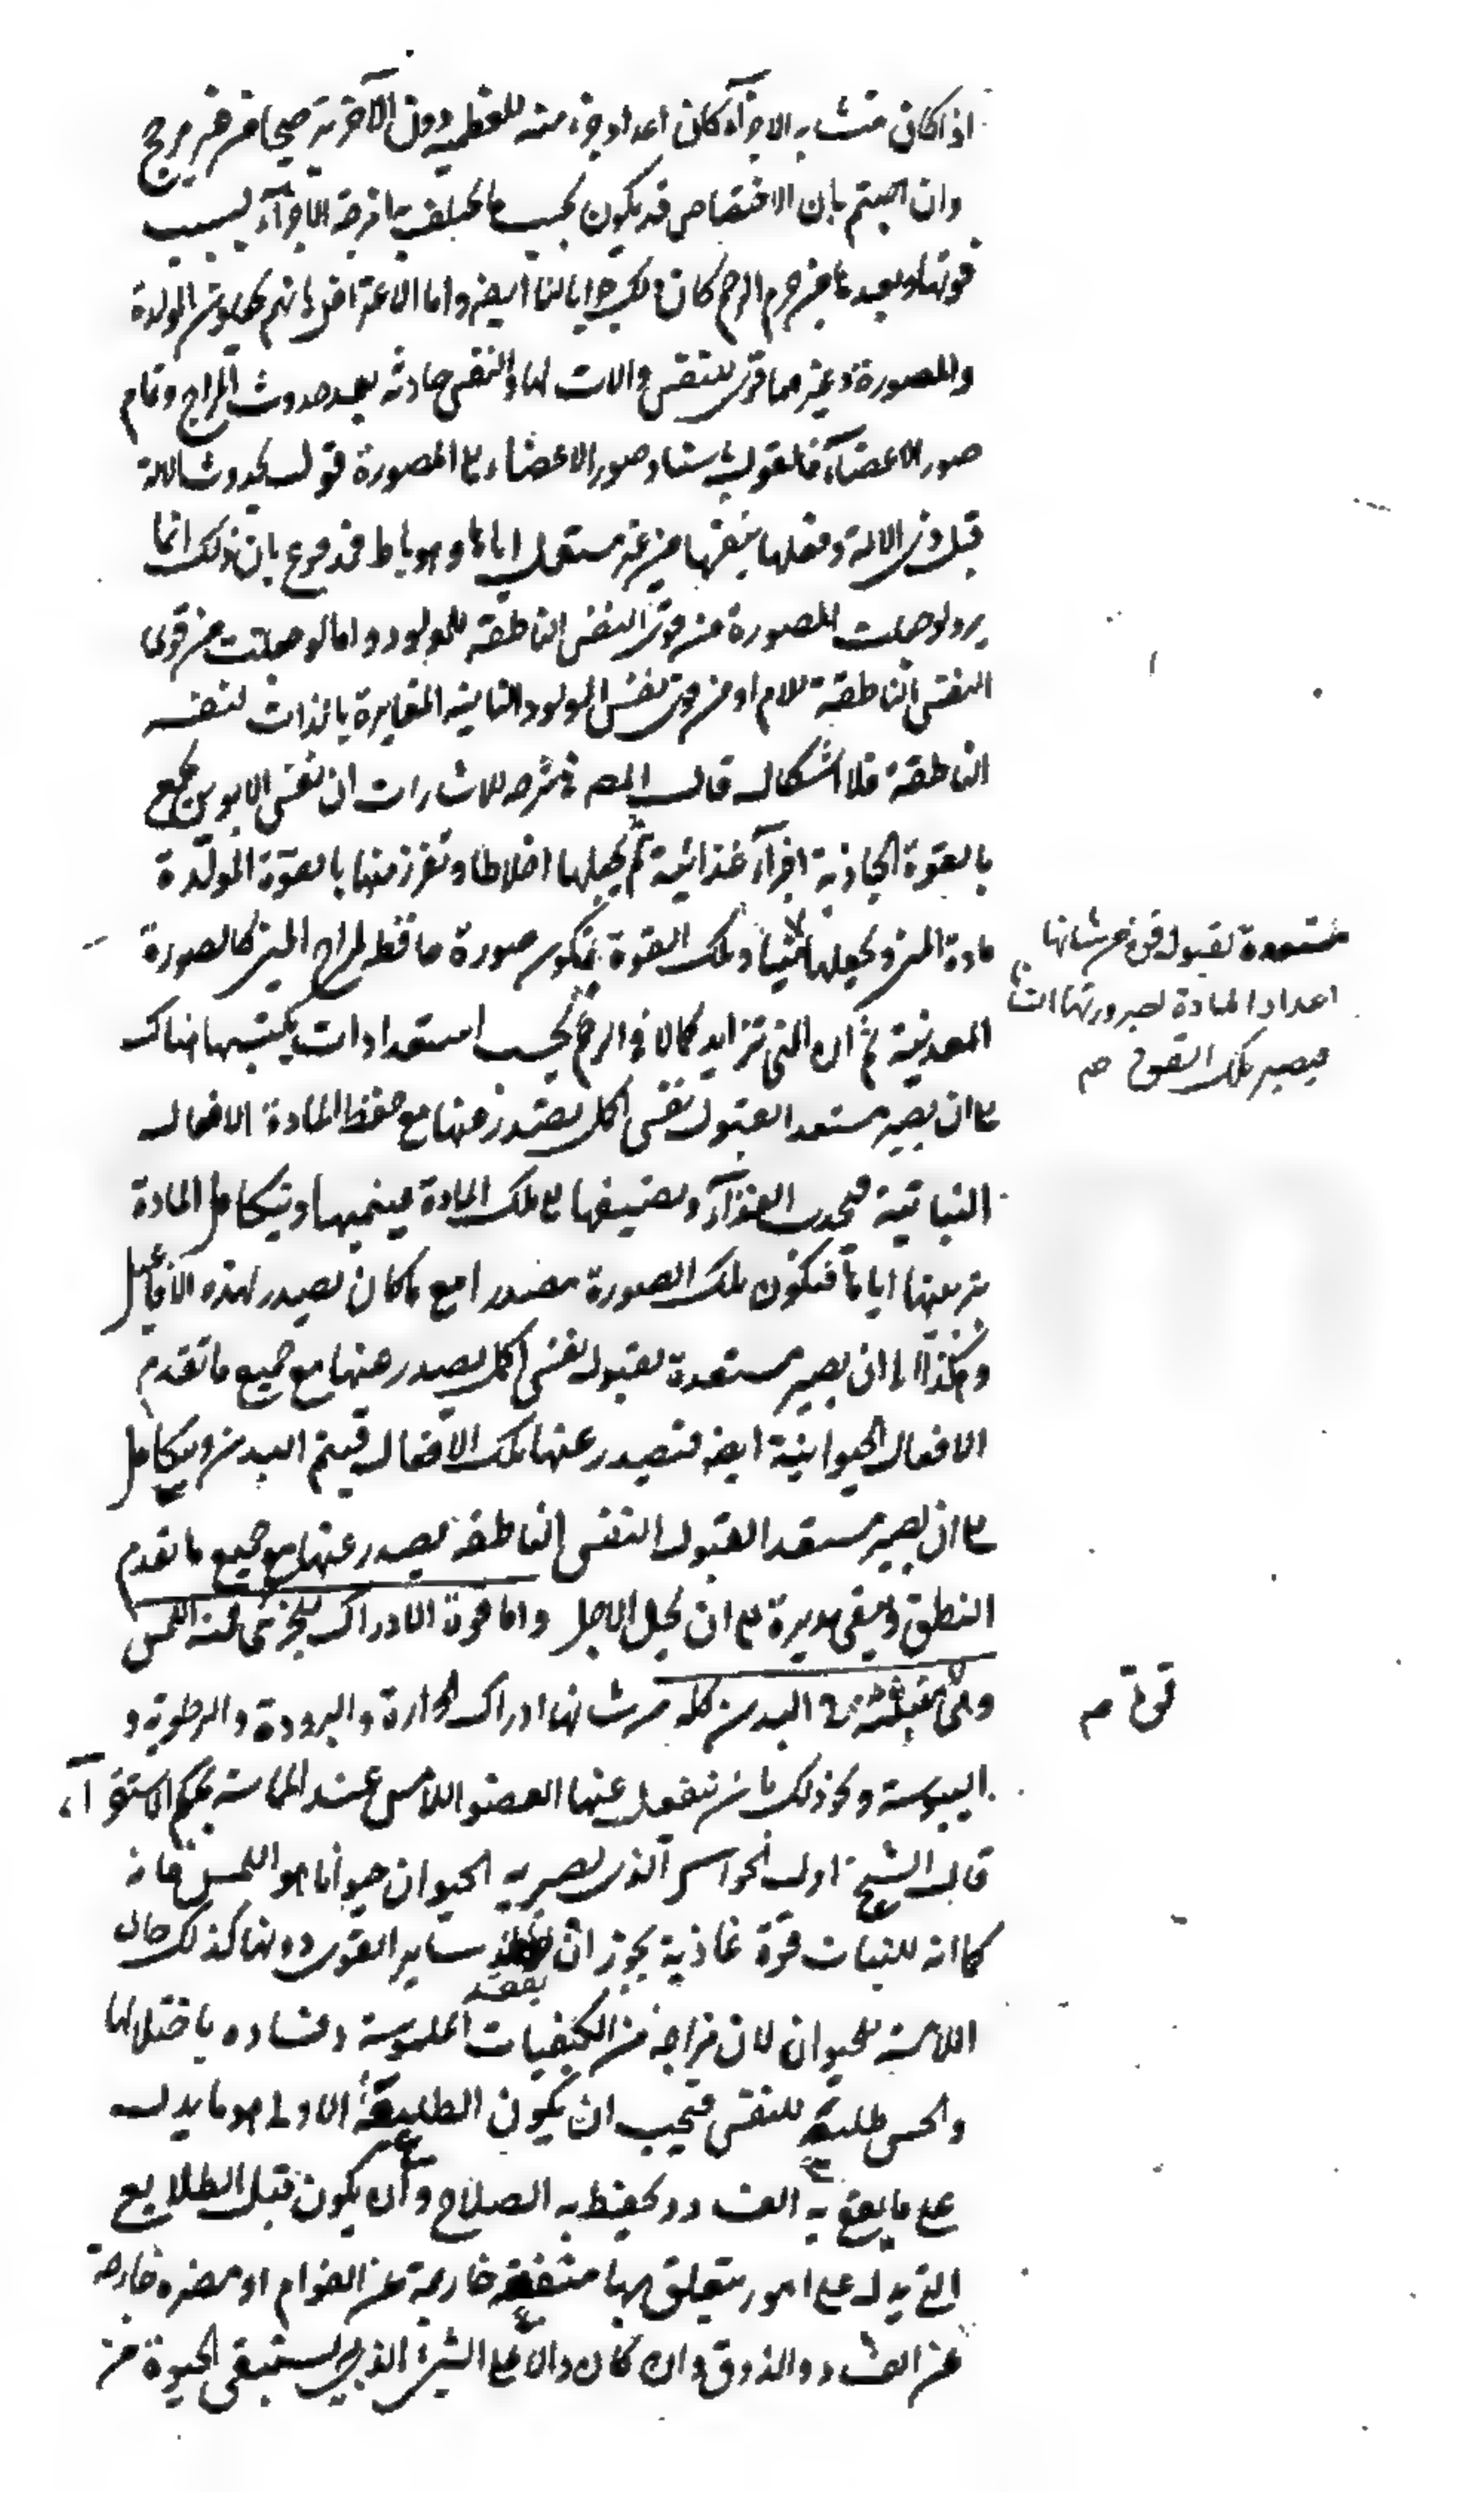 اذا كان متشابه الاجزآء كان اعداد جزء منه للعظمية دون الآخر ترجيحا من غير مرجح
وان اجبتم بان الاختصاص قد يكون بحسب ما يختلف به امزجة الاجزآء بسبب
قربها وبعدها من جرم الرحم كان ذلك جوابا لنا ايضا واما الاعتراض بانهم يجعلون المولدة
والمصورة وغيرهما قوى للنفس والات لها والنفس حادثة بعد حدوث المزاج وتمام
صور الاعضآء فالقول باستناد صور الاعضاء الى المصورة قول بحدوث الالة
قبل ذى الالة وفعلها بنفسها من غير مستعمل اياها وهو باطل فمدفوع بان ذلك انما
يرد لو جعلت المصورة من قوى النفس الناطقة للمولود واما لو جعلت من قوى
النفس الناطقة للام او من قوى نفس المولود النباتية المغايرة بالذات لنفسه
الناطقة فلا اشكال قال المص فى شرحه للاشارات ان نفس الابوين يجمع
بالقوة الجاذبة اجزآء غذائية ثم يجعلها اخلاطا وتفرز منها بالقوة المولدة
مادة المنى ويجعلها وتلك القوة يكون صورة حافظة لمزاج المنى كالصورة
مستعدة لقبول قوة من شانها
اعداد المادة لصيرورتها انسانا
فيصير بتلك القوة صح
المعدنية ثم ان المنى تتزايد كمالا فى الرحم بحسب استعدادات يكتسبها هناك
الى ان يصير مستعدا لقبول نفس اكمل يصدر عنها مع حفظ المادة الافعال
النباتية فيجذب الغذآء ويضيفها الى تلك المادة فينميها ويتكامل المادة
بتربيتها اياها فتكون تلك الصورة مصدرا مع ما كان يصدر لهذه الافاعيل
وهكذا الى ان يصير مستعدة لقبول نفس اكمل يصدر عنها مع جميع ما تقدم
الافعال الحيوانية ايضا فتصدر عنها تلك الافعال فيتم البدن ويتكامل
الى ان يصير مستعدا لقبول النفس الناطقة يصدر عنها مع جميع ما تقدم
النطق ويبقى مدبرة الى ان يحل الاجل واما قوة الادراك للجزئى فمنه اللمس
وهى منبثة فى البدن كله من شانها ادراك الحرارة والبرودة والرطوبة و
قوة صح
اليبوسة ونحو ذلك بان ينفعل عنها العضو اللامس عند المماسة بحكم الاستقرآء
قال الشيخ اول الحواس الذى يصير به الحيوان حيوانا هو اللمس فانه
كما ان للنبات قوة غاذية يجوز ان يفقد ساير القوى دونها كذلك حال
اللامسة للحيوان لان مزاجه من الكيفيات الملموسة وفساده باختلالها
والحس طليعة للنفس فيجب ان يكون الطليعة الاولى هو ما يدل
على ما يقع به الفساد ويحفظ به الصلاح وان يكون قبل الطلايع
التى يدل على امور يتعلق بها منفعة خارجة عن القوام او مضرة خارجة
عن الفساد والذوق وان كان دالا على الشئ الذى يستبقى الحيوة من